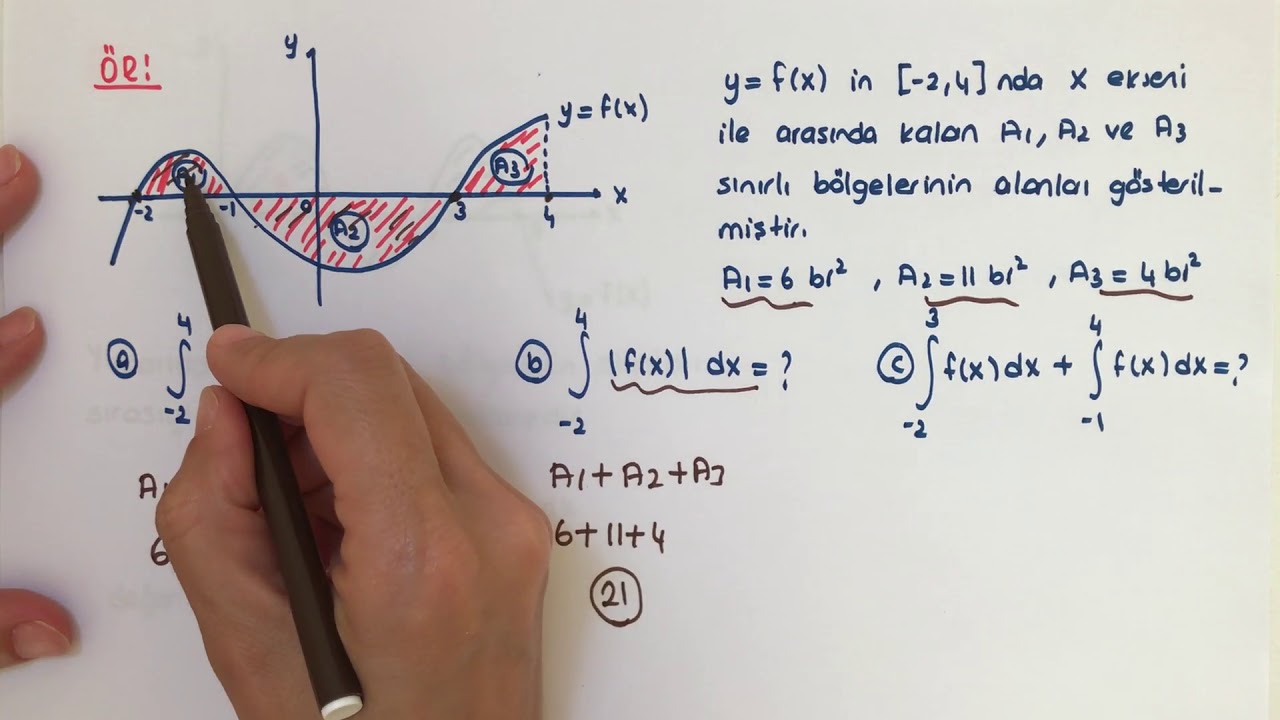 ÖR!
y
y=f(x)
A1
A2
A3
-2 -1 0 3 4 x
y=f(x) in [-2,4] nda x ekseni
ile arasında kalan A1, A2 ve A3
sınırlı bölgelerinin alanları gösteril-
miştir.
A1=6 br², A2=11 br², A3=4 br²
a) ∫_{-2}^{4}
b) ∫_{-2}^{4} |f(x)| dx=?
c) ∫_{-2}^{3} f(x)dx + ∫_{-1}^{4} f(x)dx=?
A1+A2+A3
6
6+11+4
21